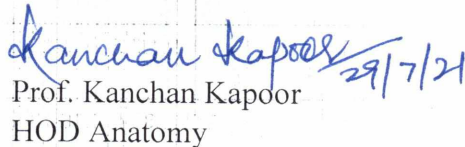 Kanchan Kapoor 29/7/21
Prof. Kanchan Kapoor
HOD Anatomy